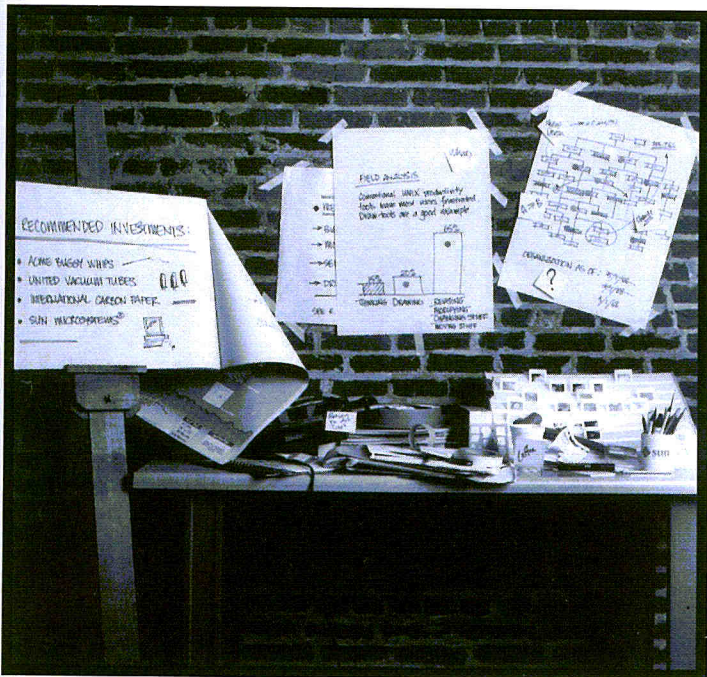 RECOMMENDED INVESTMENTS:
• ACME BUGGY WHIPS
• UNITED VACUUM TUBES
• INTERNATIONAL CARBON PAPER
• SUN MICROSYSTEMS®
SEE
FIELD ANALYSIS
Conventional UNIX productivity
tools leave most users frustrated
Draw tools are a good example
15%
20%
65%
THINKING
DRAWING
REVISING
MODIFYING
CHANGING STUFF
MOVING STUFF
ORGANIZATION AS OF:
?
Coffee
sun